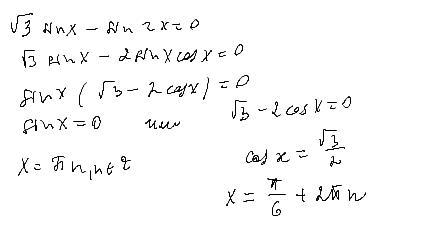 √3 sin x − sin 2x = 0
√3 sin x − 2 sin x cos x = 0
sin x (√3 − 2 cos x) = 0
sin x = 0 или √3 − 2 cos x = 0
x = πn, n ∈ Z
cos x = √3/2
x = π/6 + 2πn